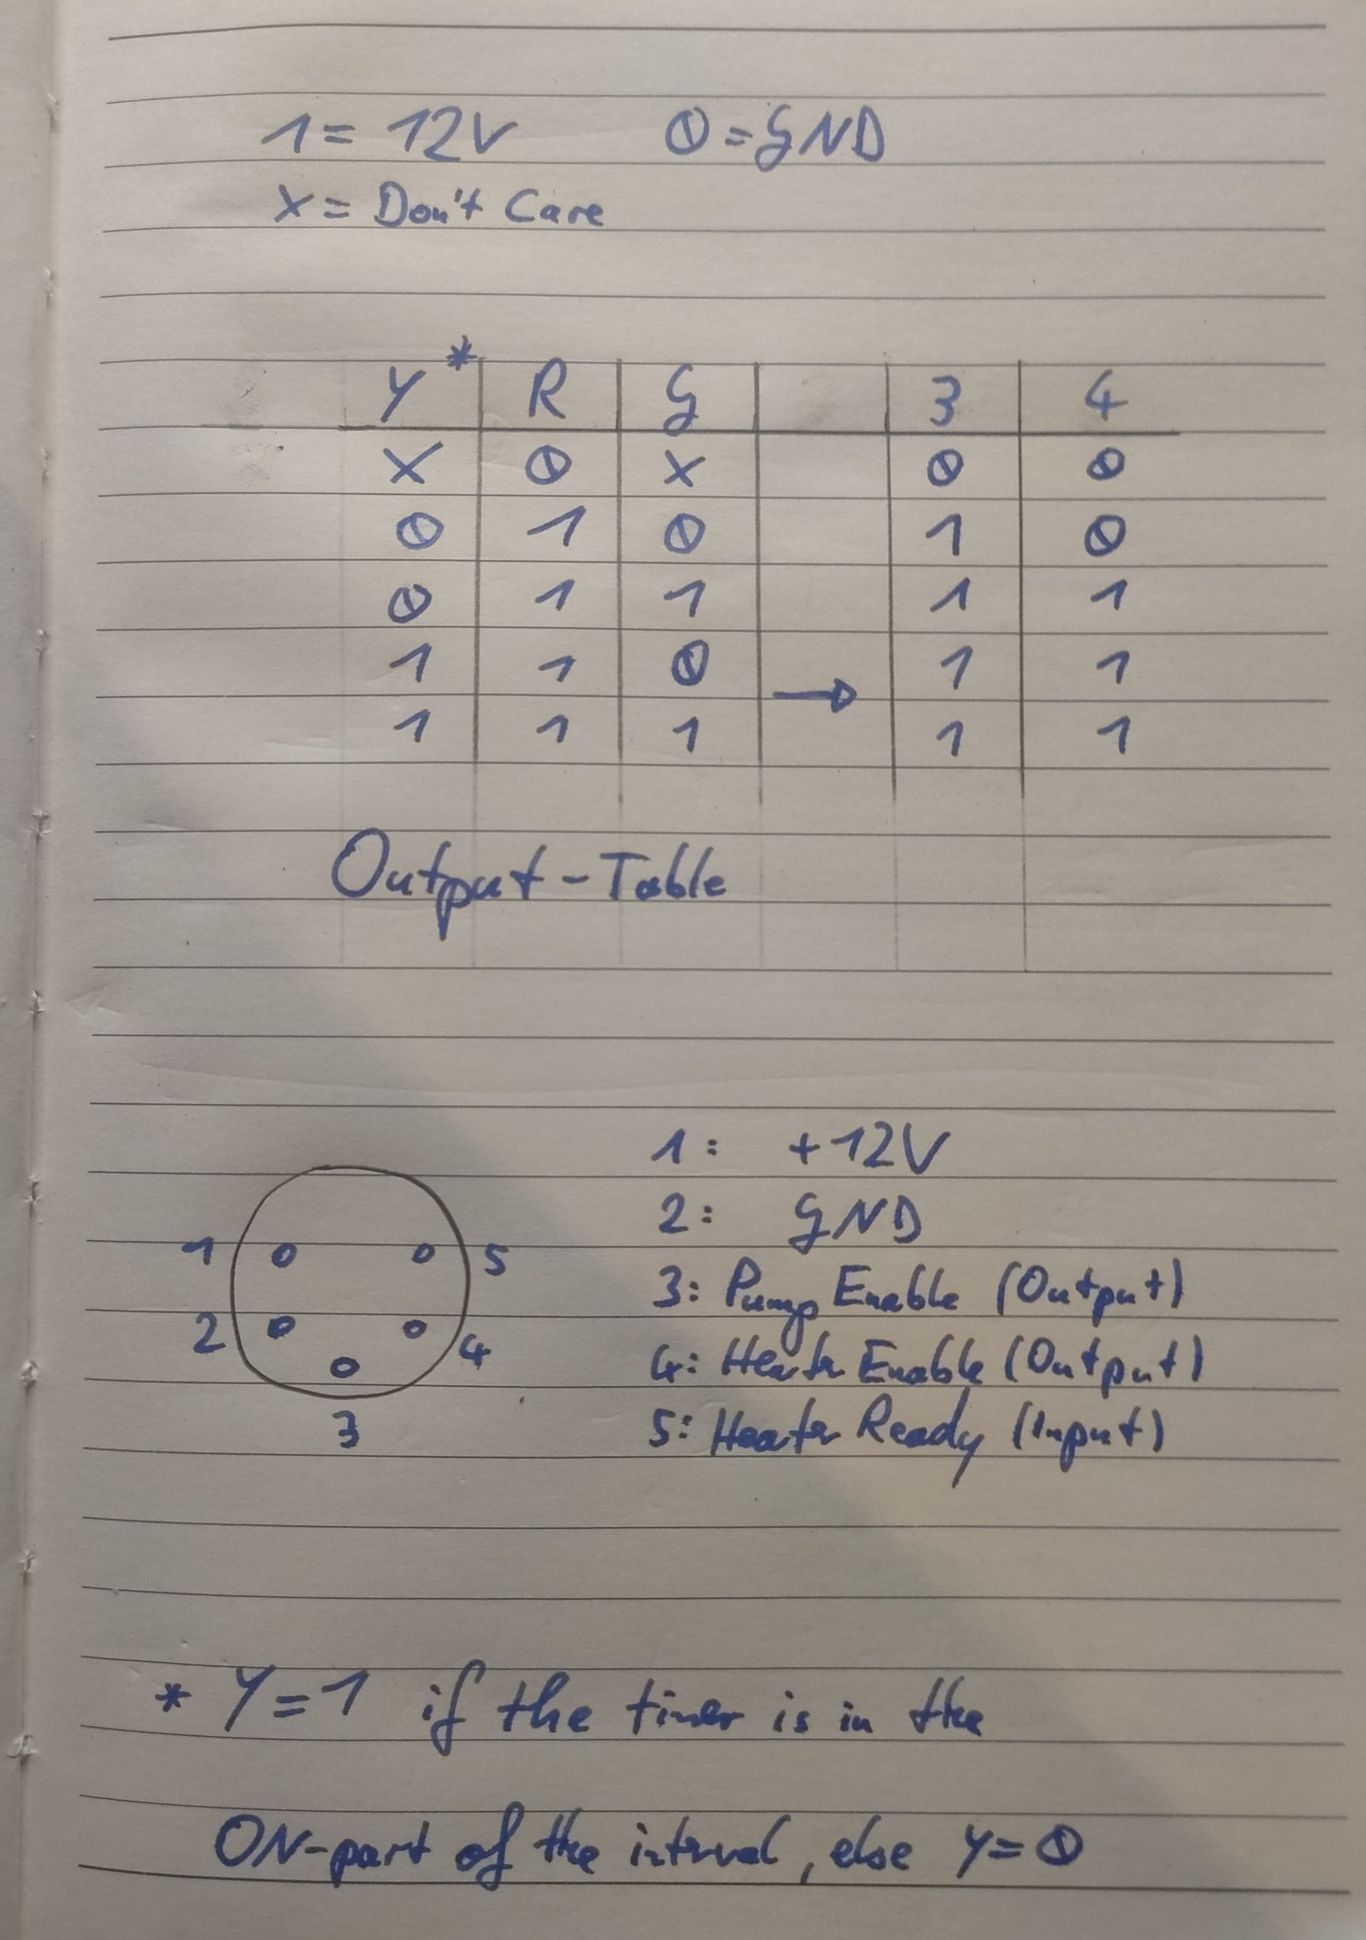 1 = 12V 0 = GND
X = Don't Care
Y* R G 3 4
X 0 X 0 0
0 1 0 1 0
0 1 1 1 1
1 1 0 → 1 1
1 1 1 1 1
Output-Table
1: +12V
2: GND
1 5
3: Pump Enable (Output)
2 4
4: Heater Enable (Output)
3
5: Heater Ready (Input)
* Y=1 if the timer is in the
ON-part of the interval, else Y=0